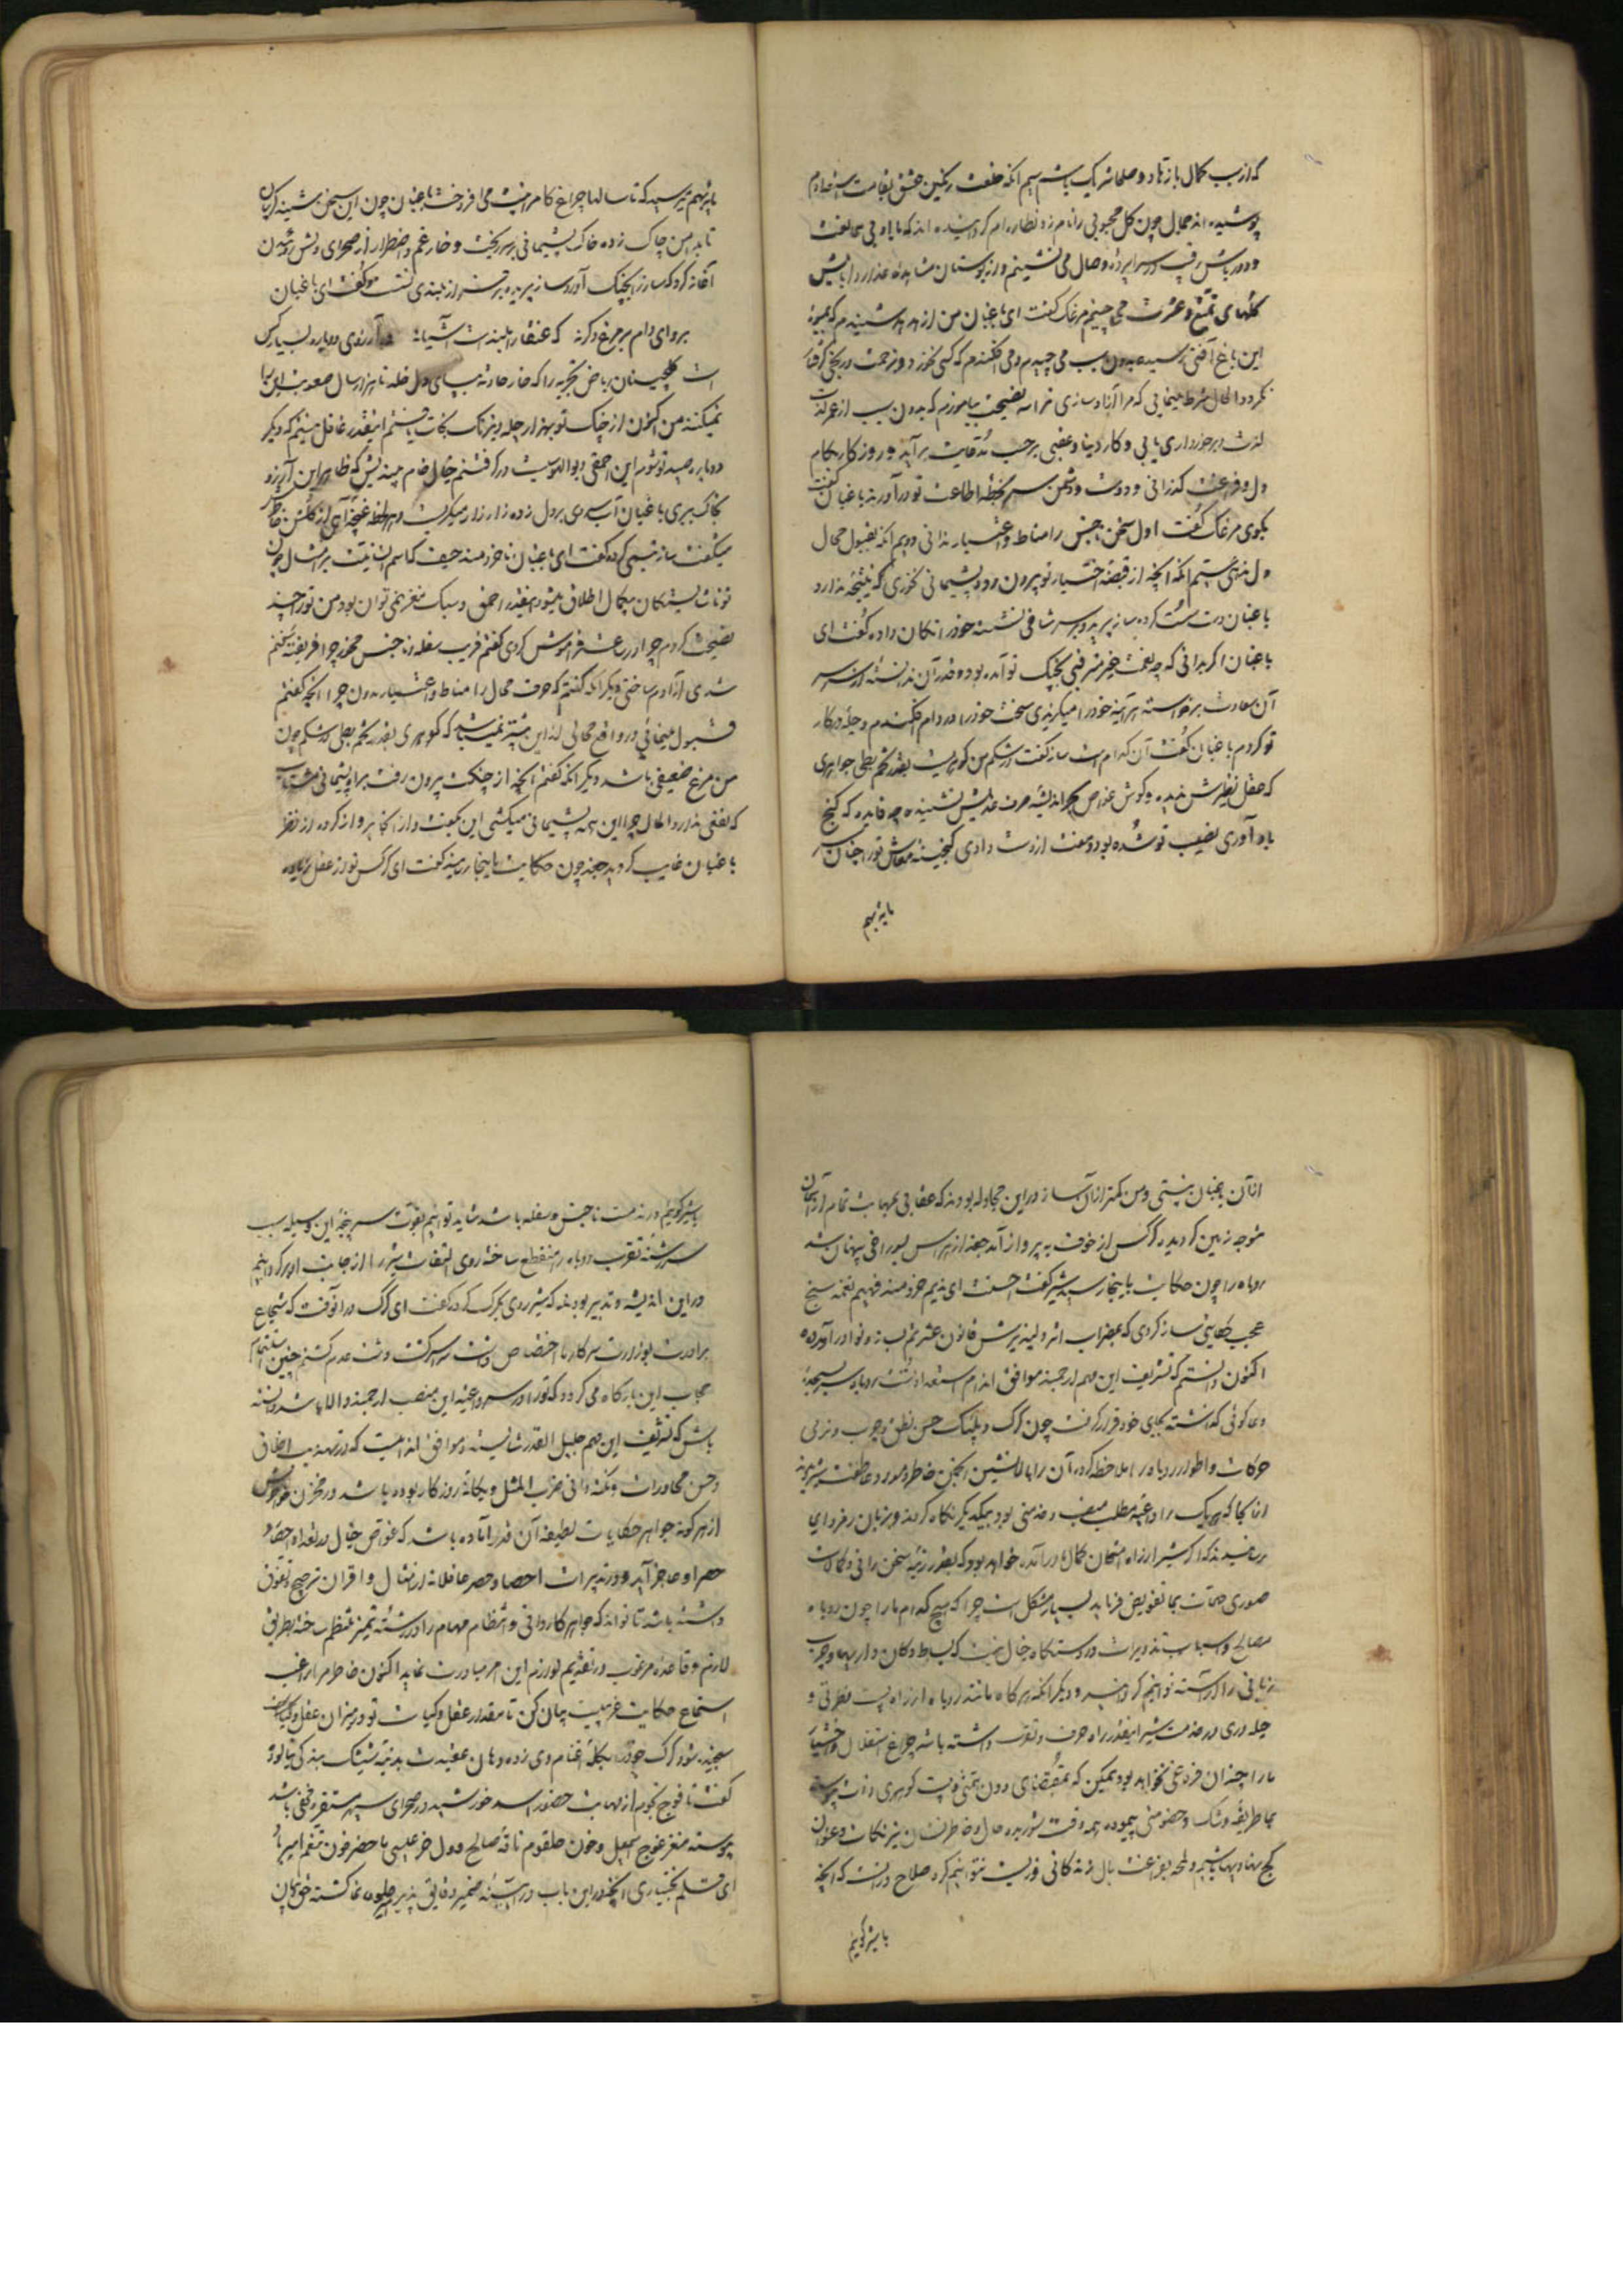 که از سبب کمال باز تا دو صلصا شریک باشم سیم آنکه خلعت رنگین عشق بقامت
پوشیده اند محال چون گل محبوبی را نامزد نظاره ام گردانیده اند که با او بی ممانعت
و دور باش رقیب در سراپرده وصال می نشینم و از بوستان مشاهده عذار دلربایش
گلهای تمتع و عشرت می چینم مرغک گفت ای باغبان من از هدهد شنیدم که میوهٔ
این باغ آفتی رسیده بدون سبب می چیدم و می افکندم که کسی نخورد و زحمت در
نگردد الحال شرط مینمایی که مرا آزاد سازی ترا سه نصیحت بیاموزم که بدون سبب از عمر لذت
لذت و برخورداری یابی و کار دنیا و عقبی بر حسب مدعایت برآید و روزگار بکام
دل و فراغت گذرانی و دوست و دشمن سر بخطه اطاعت تو درآورند باغبان گفت
بگوی مرغک گفت اول سخن ناجنس را مناط و اعتبار ندانی دویم آنکه بقبول محال
دل ننهی سیم آنکه آنچه از قبضهٔ اختیار تو بیرون رود پشیمانی نخوری که نتیجه ندارد
باغبان دست سست کرده سار پرید و بر سر شاخی نشسته خود را تکان داده گفت ای
باغبان اگر بدانی که چه نعمت غیر مترقبی بچنگ تو آمده بود و قدر آن ندانسته از سر
آن سعادت برخواسته هرآینه خود را میگزیدی سخت خود را در دام فکندم و حیله در کار
تو کردم باغبان گفت آن کدام است سار گفت در شکم من گوهریست بقدر تخم بطی جواهری
که عقل نظیرش ندیده و گوش غواص بحر اندیشه حرف عدیلش نشنیده چه فایده که گنج
بادآوری نصیب تو شده بود و مفت از دست دادی گنجینه معاش تو را چنان
پایه بهم
پایه بهم میرسید که تا سالها چراغ کامرانیت می افروخت باغبان چون این سخن بشنید گریبان
تا بدامن چاک زده خاک پشیمانی بر سر ریخت و خار غم و اضطرار از صحرای دلش
آغاز کرد که سار را بچنگ آورد سار پریده بر فراز بلندی نشست و گفت ای باغبان
برو ای دام بر مرغ دگر نه که عنقا را بلندست آشیانه و آرزوی دوباره بسیار کس
است گلچینان ریاض تجربه را که خار حادثه بپای دل خلد تا هزار سال صعوبت آن را
نمیکنند من اکنون از چنگ تو بهزار حیله و نیرنگ نجات یافتم اینقدر غافل نیستم که دیگر
دوباره صید تو شوم این احمقی و بوالهوسیت در گرفتنم خیال خام میندیش که ظاهرا این آرزو
بخاک ببری باغبان آب سردی بر دل زده زار زار میگریست و هر لحظه غنچه آهی از گلشن خاطرش
میشکفت سار تبسمی کرده گفت ای باغبان ناخردمند حیف که اسم انسانیت بر امثال چون
تو ناشایستگان بیکمال اطلاق میشود اینقدر احمق و سبک مغز نمی توان بود من تو را چند
نصیحت کردم چرا در ساعت فراموش کردی گفتم فریب سفله و ناجنس مخور چرا فریفته سخنم
شدی و آزادم ساختی دیگر آنکه گفتم که حرف محال را مناط و اعتبار مدان چرا آنچه گفتم
قبول مینمائی در واقع محالی ازین بیشتر نمیباشد که گوهری بقدر تخم بطی در شکم چون
من مرغ ضعیفی باشد دیگر آنکه گفتم آنچه از چنگت بیرون رفت براه پشیمانی مشتاب
که نفعی ندارد الحال چرا این همه پشیمانی میکشی این بگفت و از آنجا پرواز کرده از نظر
باغبان غایب گردید جغد چون حکایت باینجا رسانید گفت ای کرکس تو از عقل زیاده
از آن باغبان نیستی و من کمتر از آن سار در این مجادله بودند که عقابی بمهابت تمام از آسمان
متوجه زمین گردیده کرکس از خوف به پرواز آمد جغد از هراس بسوراخی پنهان شد
روباه را چون حکایت باینجا رسید شیر گفت احسنت ای ندیم خردمند فهیم نغمه سنج
عجب حکایتی ساز کردی که بمضراب اثر دلپذیرش قانون عشرتم به نوا درآورده
اکنون دانستم که تشریف این مهم ارجمند موافق اندام استعداد تست روباه سر بسجده
دعاگوئی گذاشته بجای خود قرار گرفت چون گرگ و پلنگ حسن نطق و چرب و نرمی
حرکات و اطوار روباه را ملاحظه کرده آن را بالانشین انجمن خاطر و مورد عاطفت شیر دیدند
از آنجا که هر یک را داعیه مطلب منصب در ضمنی بود بیکدیگر نگاه کردند و بزبان رمز و ایما
رسانیدند که اگر شیر از راه امتحان کمال ما درآمده خواهد بود که بقدر رتبه سخن رانی و کمالات
صوری خدمات بما تفویض فرماید بسیار مشکل است چرا که هیچ کدام ما را چون روباه
مصالح و اسباب تدبیرات در دستگاه خیال نیست که بساط دکان داریها و چرب
زبانی را آراسته توانیم گردانید و دیگر آنکه هرگاه مانند روباه از راه پست فطرتی و
حیله وری در خدمت شیر اینقدر راه حرف و تقرب داشته باشد چراغ استقلال و اختیار
ما را چندان فروغی نخواهد بود ممکن که بمقتضای دون همتی و پست گوهری ذات پیوسته
بما طریقه رشک و خصومتی پیموده همه وقت شوریده حال و خاطر نشان نیرنگات و عنوان
کج نهادیها باشیم و لمحه بفراغت بال زندگانی و زیست نتوانیم کرد صلاح در آنست که آنچه
با شیر گویم
با شیر گویم در مذمت ناجنس و سفله باشد شاید توانیم بقوت سرپنجه این وسیله سبب
سررشته تقرب روباه را منقطع ساخته روی التفات شیر را از جانب او برگردانیم
در این اندیشه و تدبیر بودند که شیر روی بگرگ کرده گفت ای گرگ در آنوقت که شجاع
برادرت بوزارت سرکار ما اختصاص داشت سر از گشت و شت عدم کشتم چنین استفهام
حجاب این بارگاه می گردد که تو را در سر داعیه این منصب ارجمند والا باشد دانسته
باش که تشریف این مهم جلیل القدر شایسته و موافق اندامیست که در تهذیب اخلاق
و حسن محاورات و نکته دانی ضرب المثل و یگانه روزگار بوده باشد و در مخزن خاطرش
از هرگونه جواهر حکایات لطیفه آن قدر آماده باشد که غواص خیال در تعداد احصا و
حصر او عاجز آید و در تدبیرات احصا و حصر عاقلانه از امثال و اقران ترجیح و تفوق
داشته باشد تا تواند که جواهر کاردانی و انتظام مهام را در رشته تمیز منتظم ساخته بطریق
لازم و قاعده مرغوب در تقدیم لوازم این امر مبادرت نماید اکنون خاطرم راغب
استماع حکایت غریبیست بیان کن تا مقدار عقل و کیاست تو در میزان عقل و کیاست
سنجیده شود گرگ خود را بگله اغنام وی زده دهان عقیدت بدنبه شیشک بندگی بیالود
گفت تا فوج نجوم از مهابت حضور اسد خورشید در صحرای سپهر متفرق و مخفی باشد
پیوسته مغز غوج اسمعیل و خون حلقوم ناقه صالح و دل خر عیسی ماحضر خون تنغم امیر باد
ای مسلم بختیاری آنچه در این باب در آئینه ضمیر دقایق پذیر جلوه نما گشته